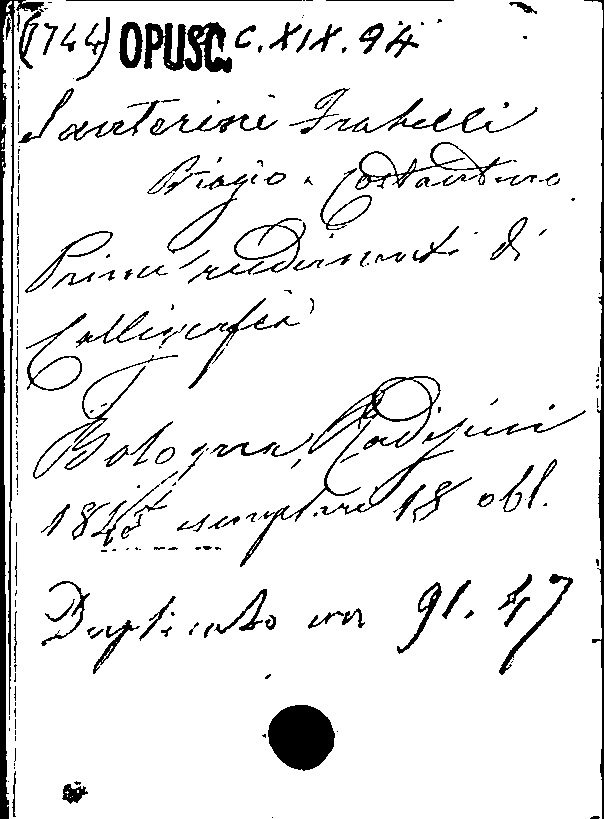 (1744) OPUSC. C. XIX. 94
Santerini Fratelli
Biagio e Costantino
Primi rudimenti di
Calligrafia
Bologna,
18 esemplari 18 obl.
Duplicato con 91. 47